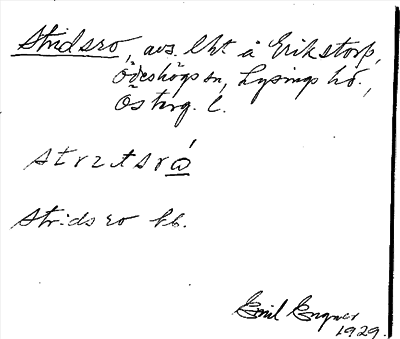 Stridsro, avs. lht å Erikstorp,
Ödeshögs sn, Lysings hd.,
Österg. l.
strɪtsrώ
Stridsro kb.
Emil Engner
1929.